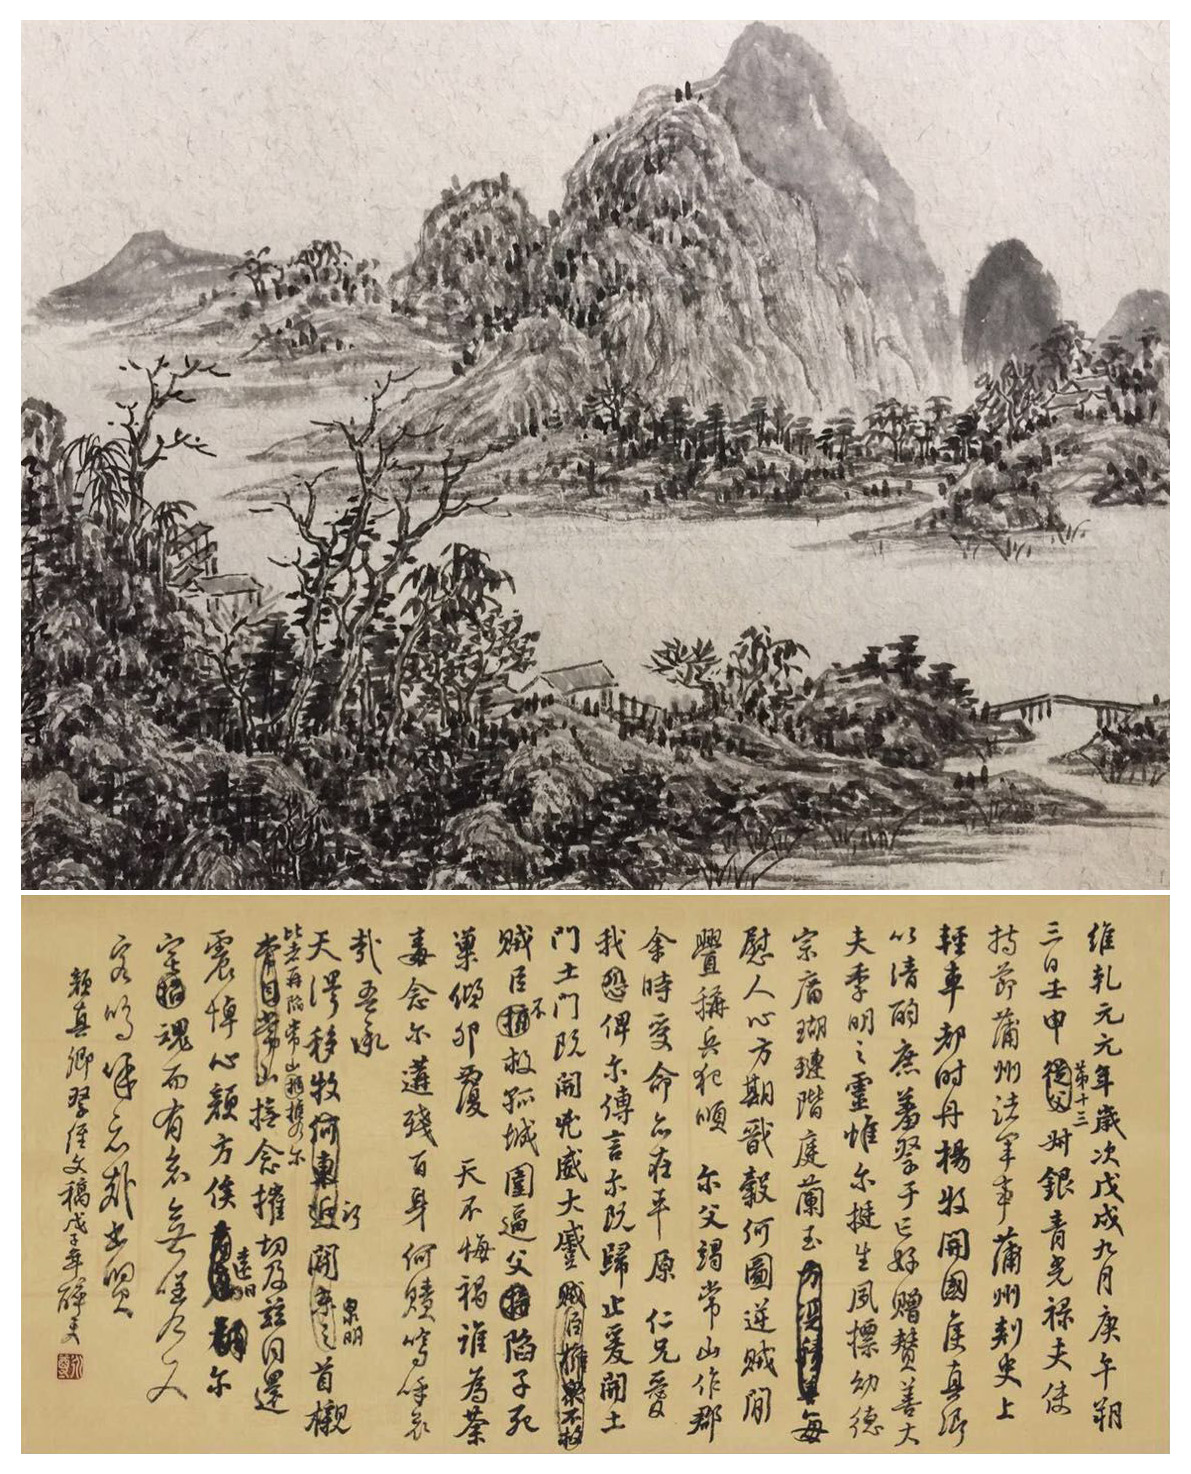 維乾元元年歲次戊戌九月庚午朔
三日壬申第十三從父叔銀青光禄夫使
持節蒲州諸軍事蒲州刺史上
輕車都尉丹楊牧開國侯真卿
以清酌庶羞祭于亡姪贈贊善大
夫季明之靈惟尔挺生夙標幼德
宗廟瑚璉階庭蘭玉每
慰人心方期戩穀何圖逆賊閒
釁稱兵犯順尔父竭常山作郡
余時受命亦在平原仁兄愛
我恐俾尔傳言尔既歸止爰開土
門土門既開兇威大蹙賊臣擁衆不救
賊臣不救孤城圍逼父陷子死
巢傾卵覆天不悔禍誰為荼
毒念尔遘殘百身何贖嗚呼哀
哉吾承
天澤移牧河東近開泉明之首櫬
比者再陷常山提携尔
及茲同還撫念摧切
震悼心顏方俟遠日尔
宅魂而有知無嗟久
客嗚呼哀哉尚饗
顏真卿祭侄文稿戊子年